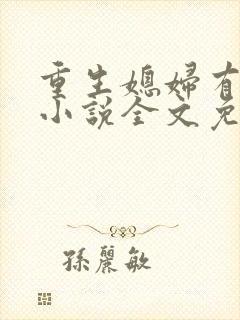 重生媳婦有
小說全文免
孫麗敏